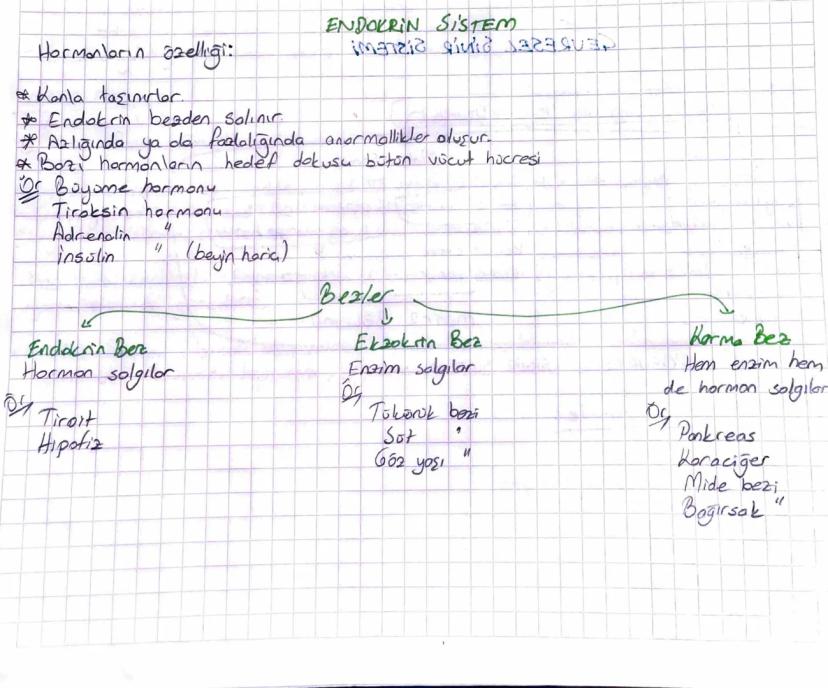 ENDOKRİN SİSTEM
Hormonların özelliği:
* Kanla taşınırlar.
* Endokrin bezden salınır.
* Azlığında ya da fazlalığında anormallikler oluşur.
* Bazı hormonların hedef dokusu bütün vücut hücresi
Ör Büyüme hormonu
Tiroksin hormonu
Adrenalin "
İnsülin " (beyin hariç)
Bezler
Endokrin Bez
Hormon salgılar
Ör
Tiroit
Hipofiz
Ekzokrin Bez
Enzim salgılar
Ör
Tükürük bezi
Süt "
Göz yaşı "
Karma Bez
Hem enzim hem
de hormon salgılar
Ör
Pankreas
Karaciğer
Mide bezi
Bağırsak "